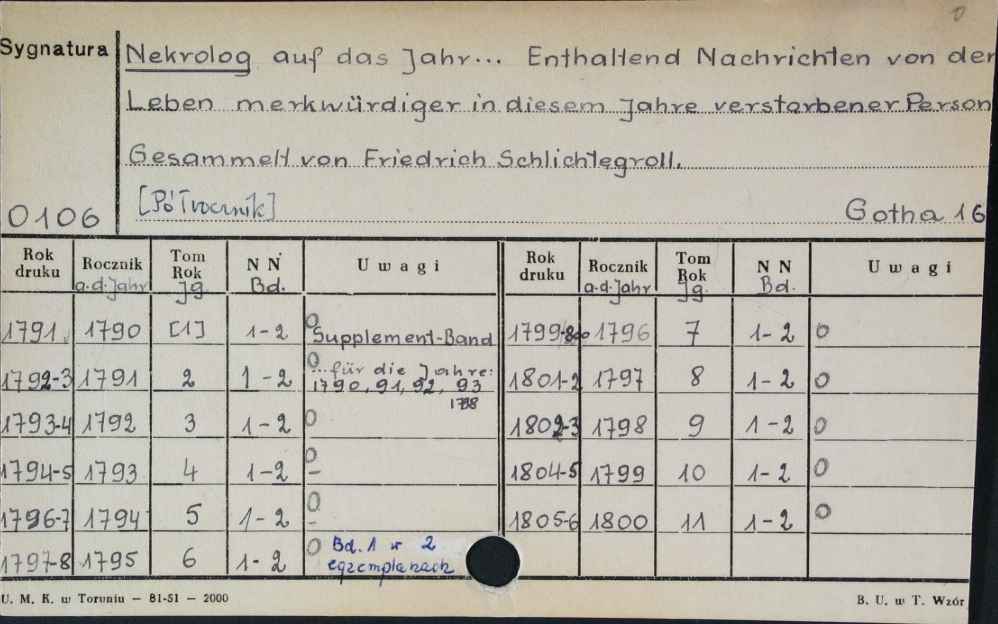 0
Sygnatura
Nekrolog auf das Jahr... Enthaltend Nachrichten von der
Leben merkwürdiger in diesem Jahre verstorbener Person
Gesammelt von Friedrich Schlichtegroll.
[Półrocznik]
0106 Gotha 16
Rok druku Rocznik a.d. Jahr Tom Rok Jg. N N Bd. Uwagi Rok druku Rocznik a.d. Jahr Tom Rok Jg. N N Bd. Uwagi
1791 1790 [1] 1-2 0 Supplement-Band 1799-800 1796 7 1-2 0
1792-3 1791 2 1-2 0 ...für die Jahre: 1790, 91, 92, 93 1801-2 1797 8 1-2 0
1798
1793-4 1792 3 1-2 0 1802-3 1798 9 1-2 0
1794-5 1793 4 1-2 0 - 1804-5 1799 10 1-2 0
1796-7 1794 5 1-2 0 - 1805-6 1800 11 1-2 0
1797-8 1795 6 1-2 0 Bd. 1 w 2
egzemplarzach
U. M. K. w Toruniu — 81-51 — 2000 B. U. w T. Wzór